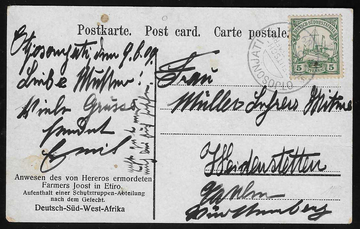 Postkarte. Post card. Carte postale.
Otjosonjati, den 9.6.09.
Liebe Mutter!
Viele Grüsse
sendet
Emil
Anwesen des von Hereros ermordeten
Farmers Joost in Etiro.
Aufenthalt einer Schutztruppen-Abteilung
nach dem Gefecht.
Deutsch-Süd-West-Afrika
OTJOSONJATI
5 5
Frau
Müller Lehrers Witwe
Heidenstetten
Württemberg